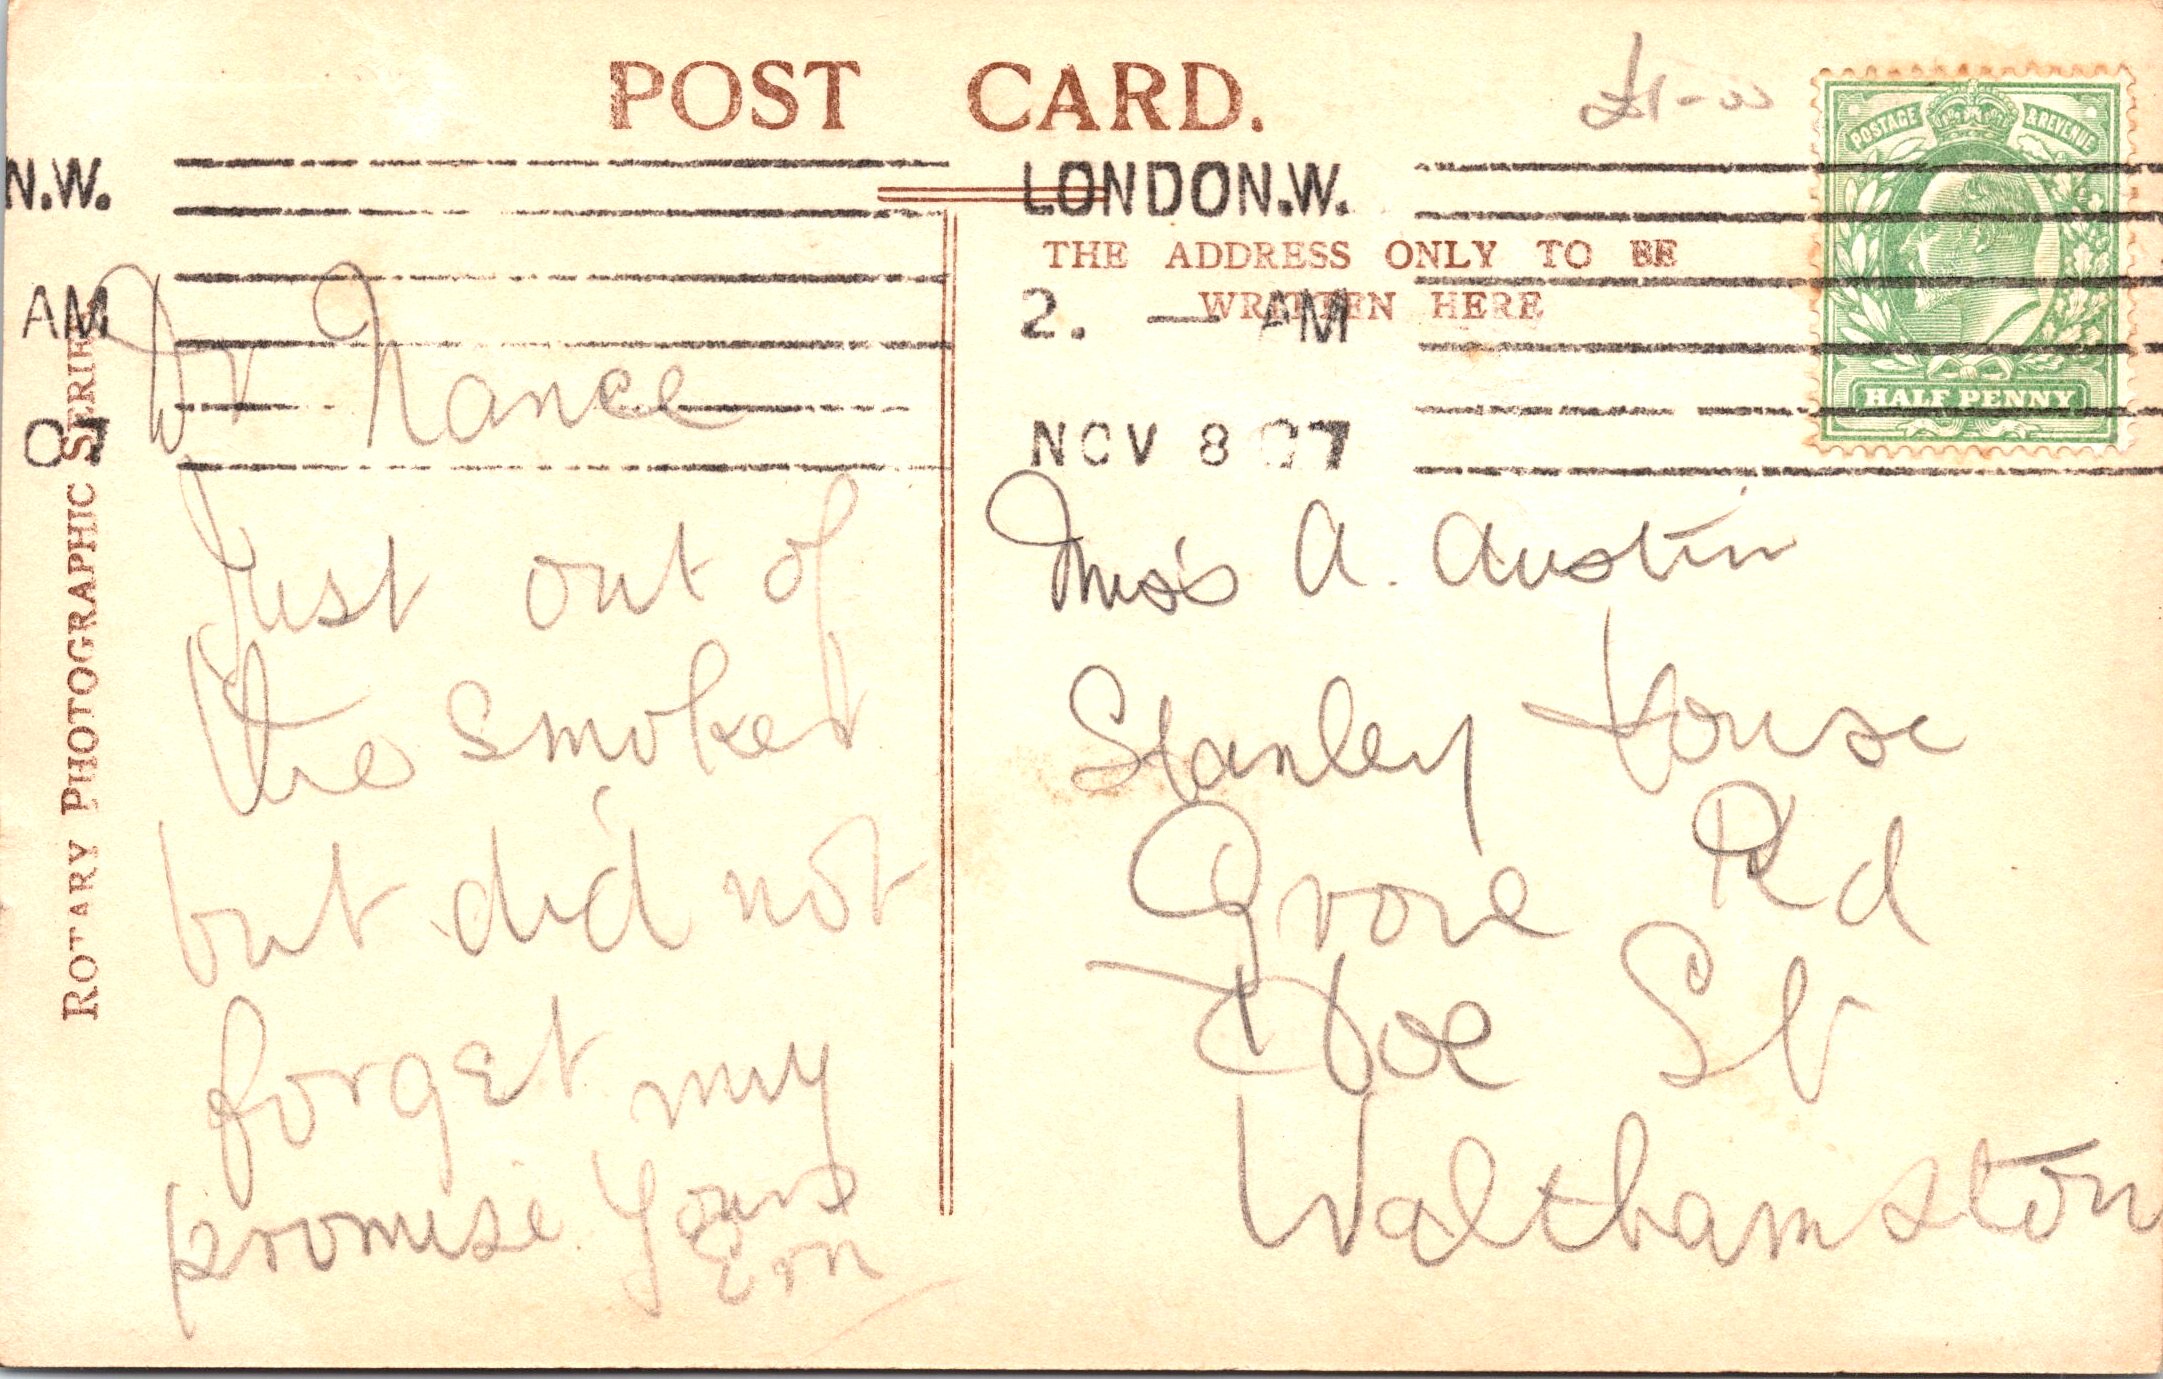 POST CARD.
£1-00
N.W.
AM
07
LONDON.W.
2. — AM
NOV 8 07
THE ADDRESS ONLY TO BE
WRITTEN HERE
POSTAGE & REVENUE
HALF PENNY
ROTARY PHOTOGRAPHIC SERIES
Dr Nance
Just out of
the smoker
but did not
forget my
promise Yours
Ern
Miss A. Austin
Stanley House
Grove Rd
Hoe St
Walthamston